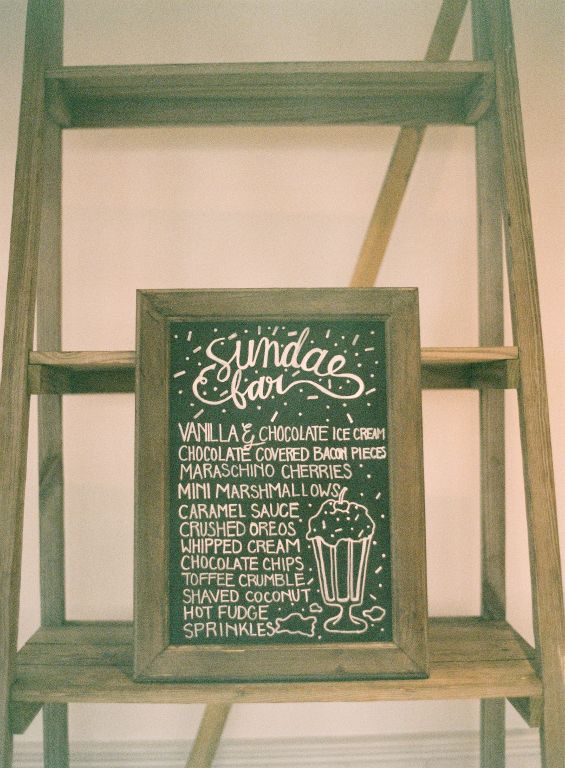 Sundae
bar
VANILLA & CHOCOLATE ICE CREAM
CHOCOLATE COVERED BACON PIECES
MARASCHINO CHERRIES
MINI MARSHMALLOWS
CARAMEL SAUCE
CRUSHED OREOS
WHIPPED CREAM
CHOCOLATE CHIPS
TOFFEE CRUMBLE
SHAVED COCONUT
HOT FUDGE
SPRINKLES